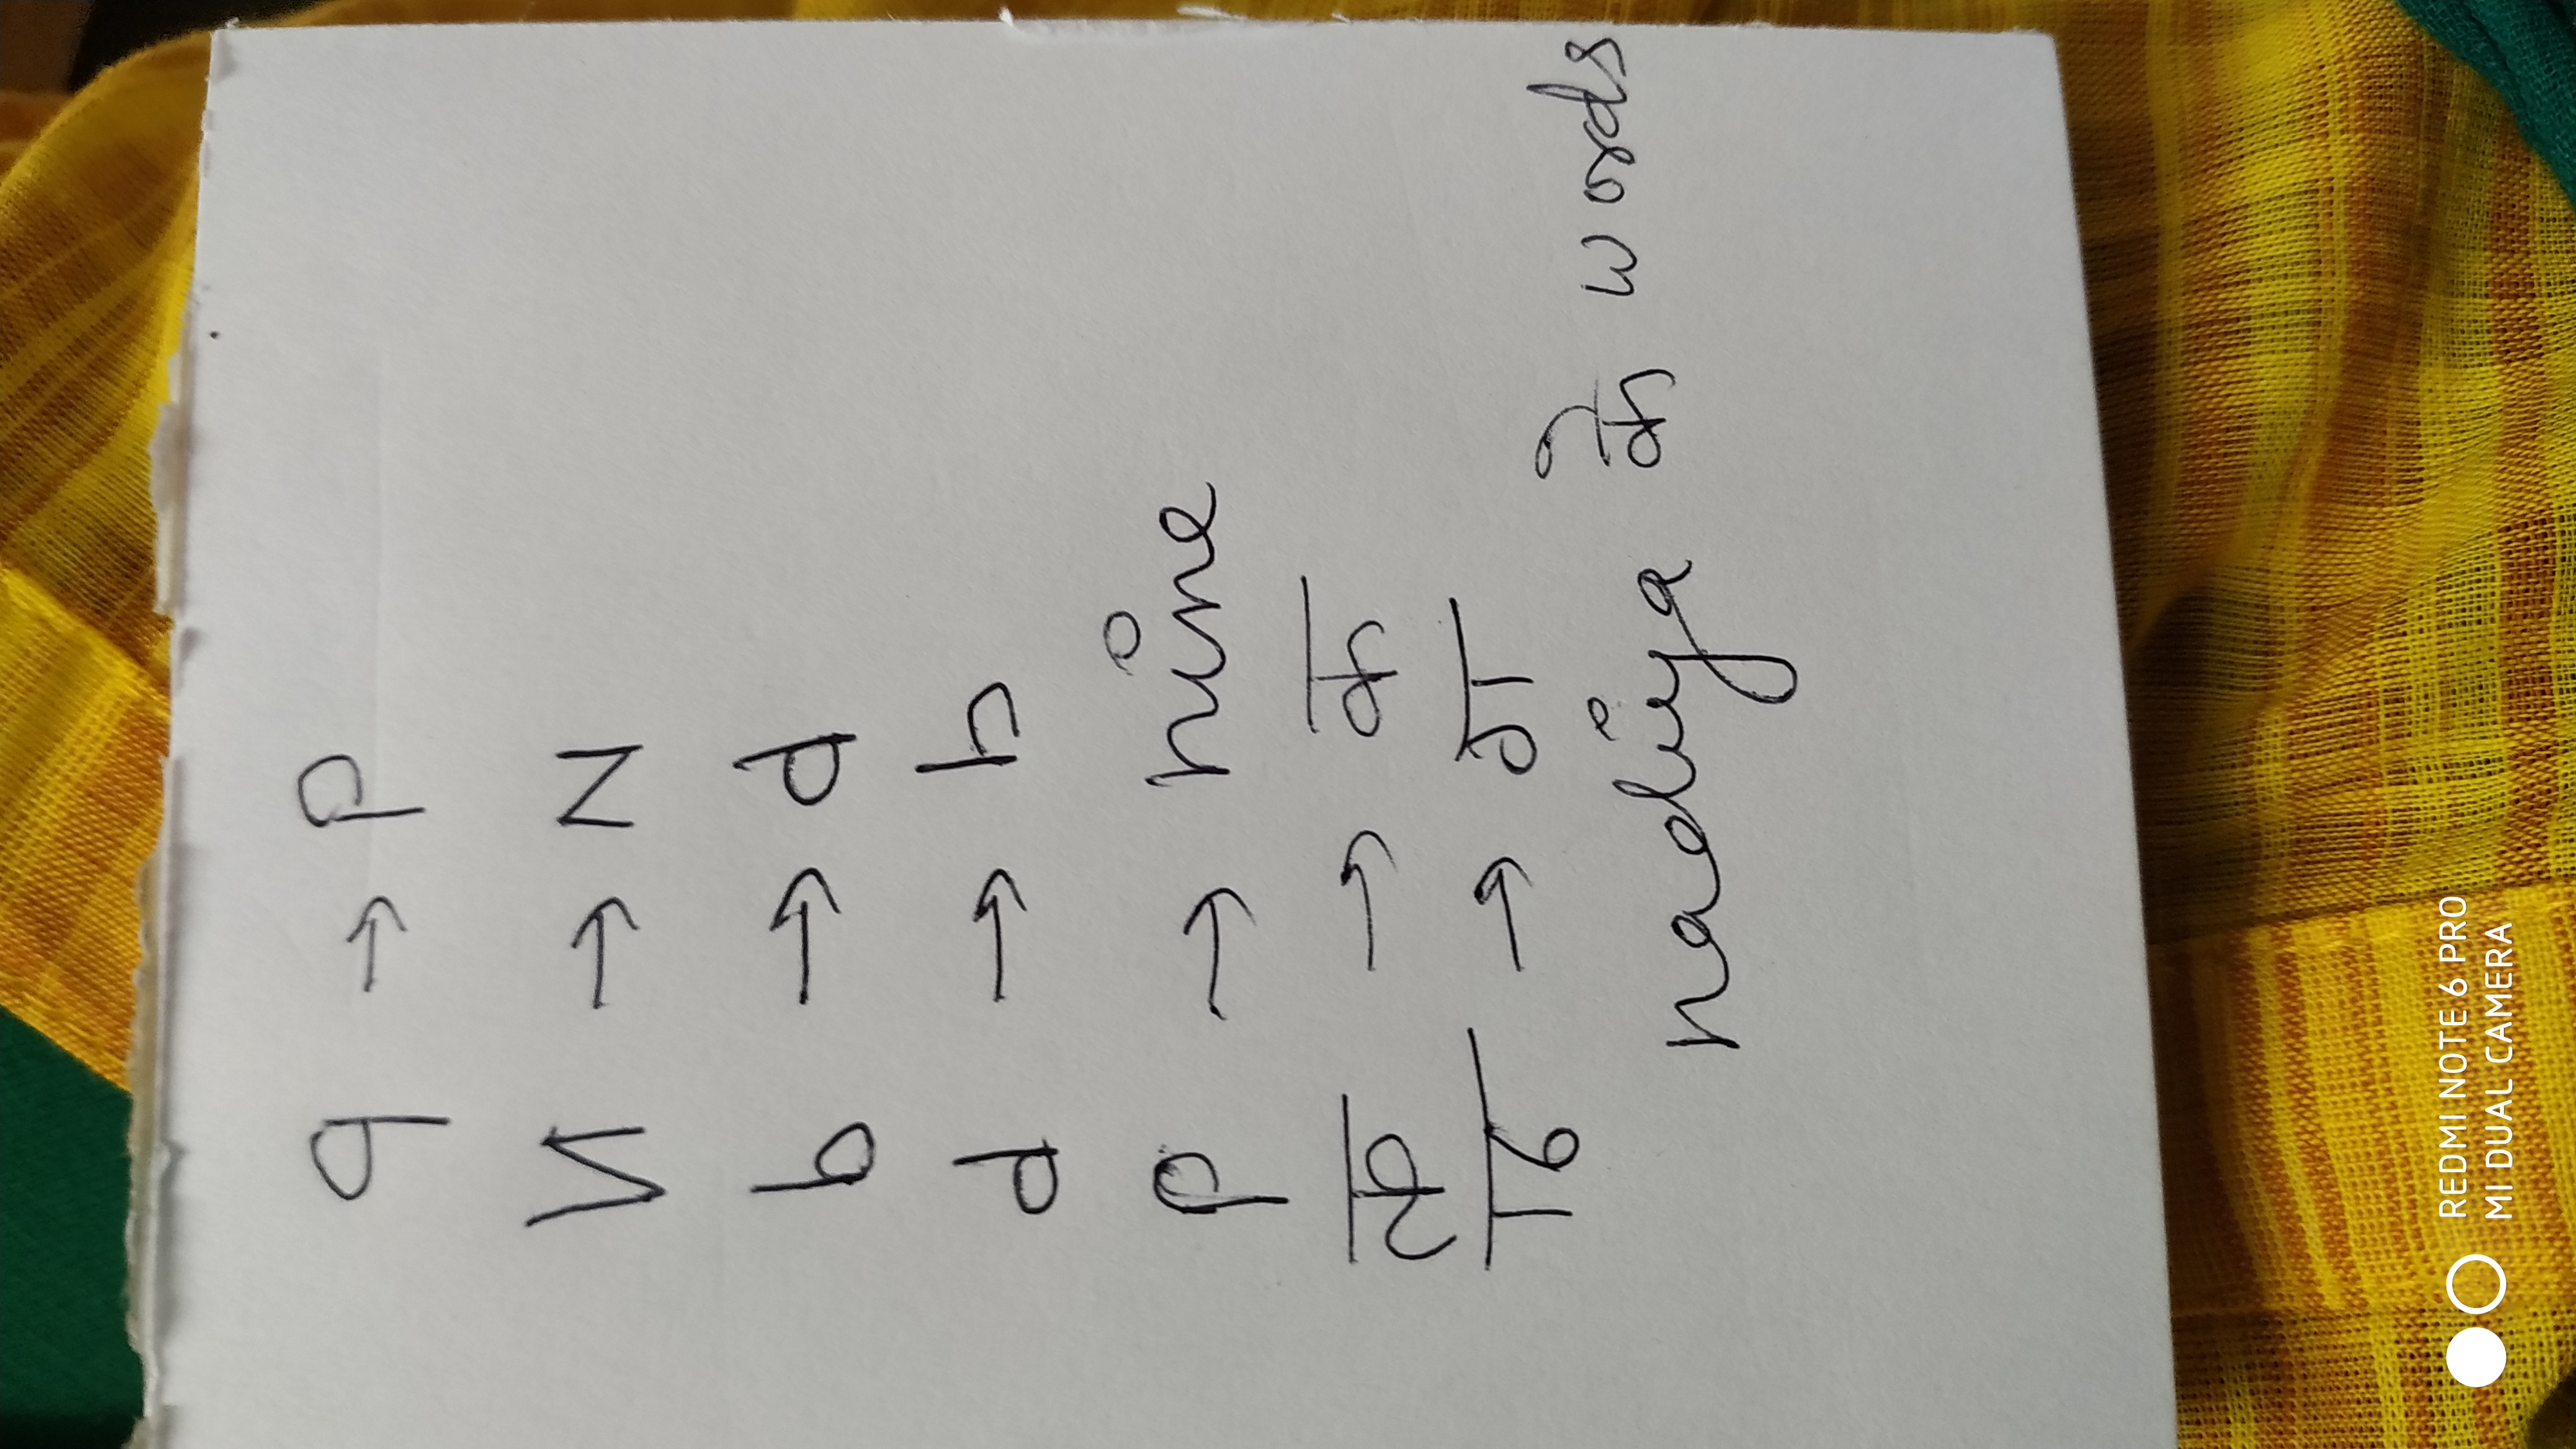 q → P
И → N
b → d
d → h
p → nine
→ क
→ ग
nadiya के words
REDMI NOTE 6 PRO
MI DUAL CAMERA